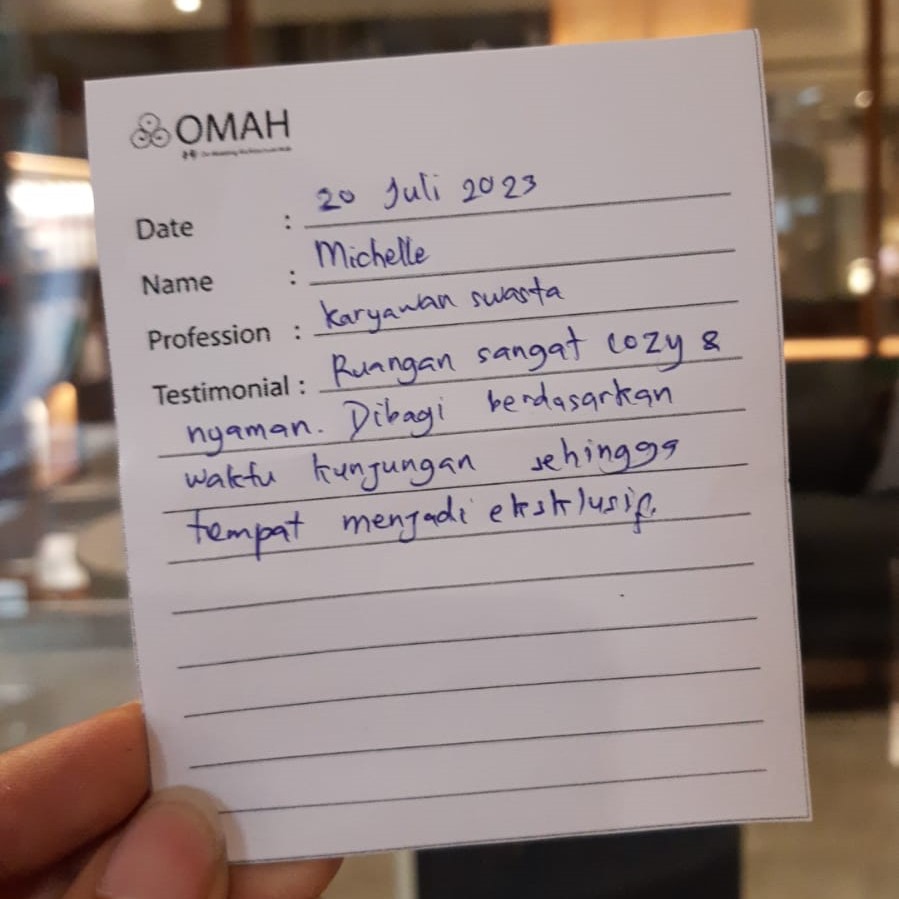 OMAH
Date : 20 Juli 2023
Name : Michelle
Profession : Karyawan swasta
Testimonial : Ruangan sangat cozy &
nyaman. Dibagi berdasarkan
waktu kunjungan sehingga
tempat menjadi eksklusif.